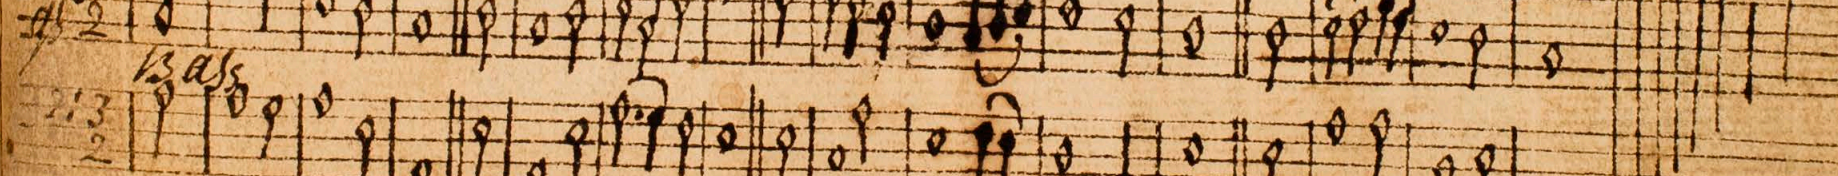 2
Bass
3
2